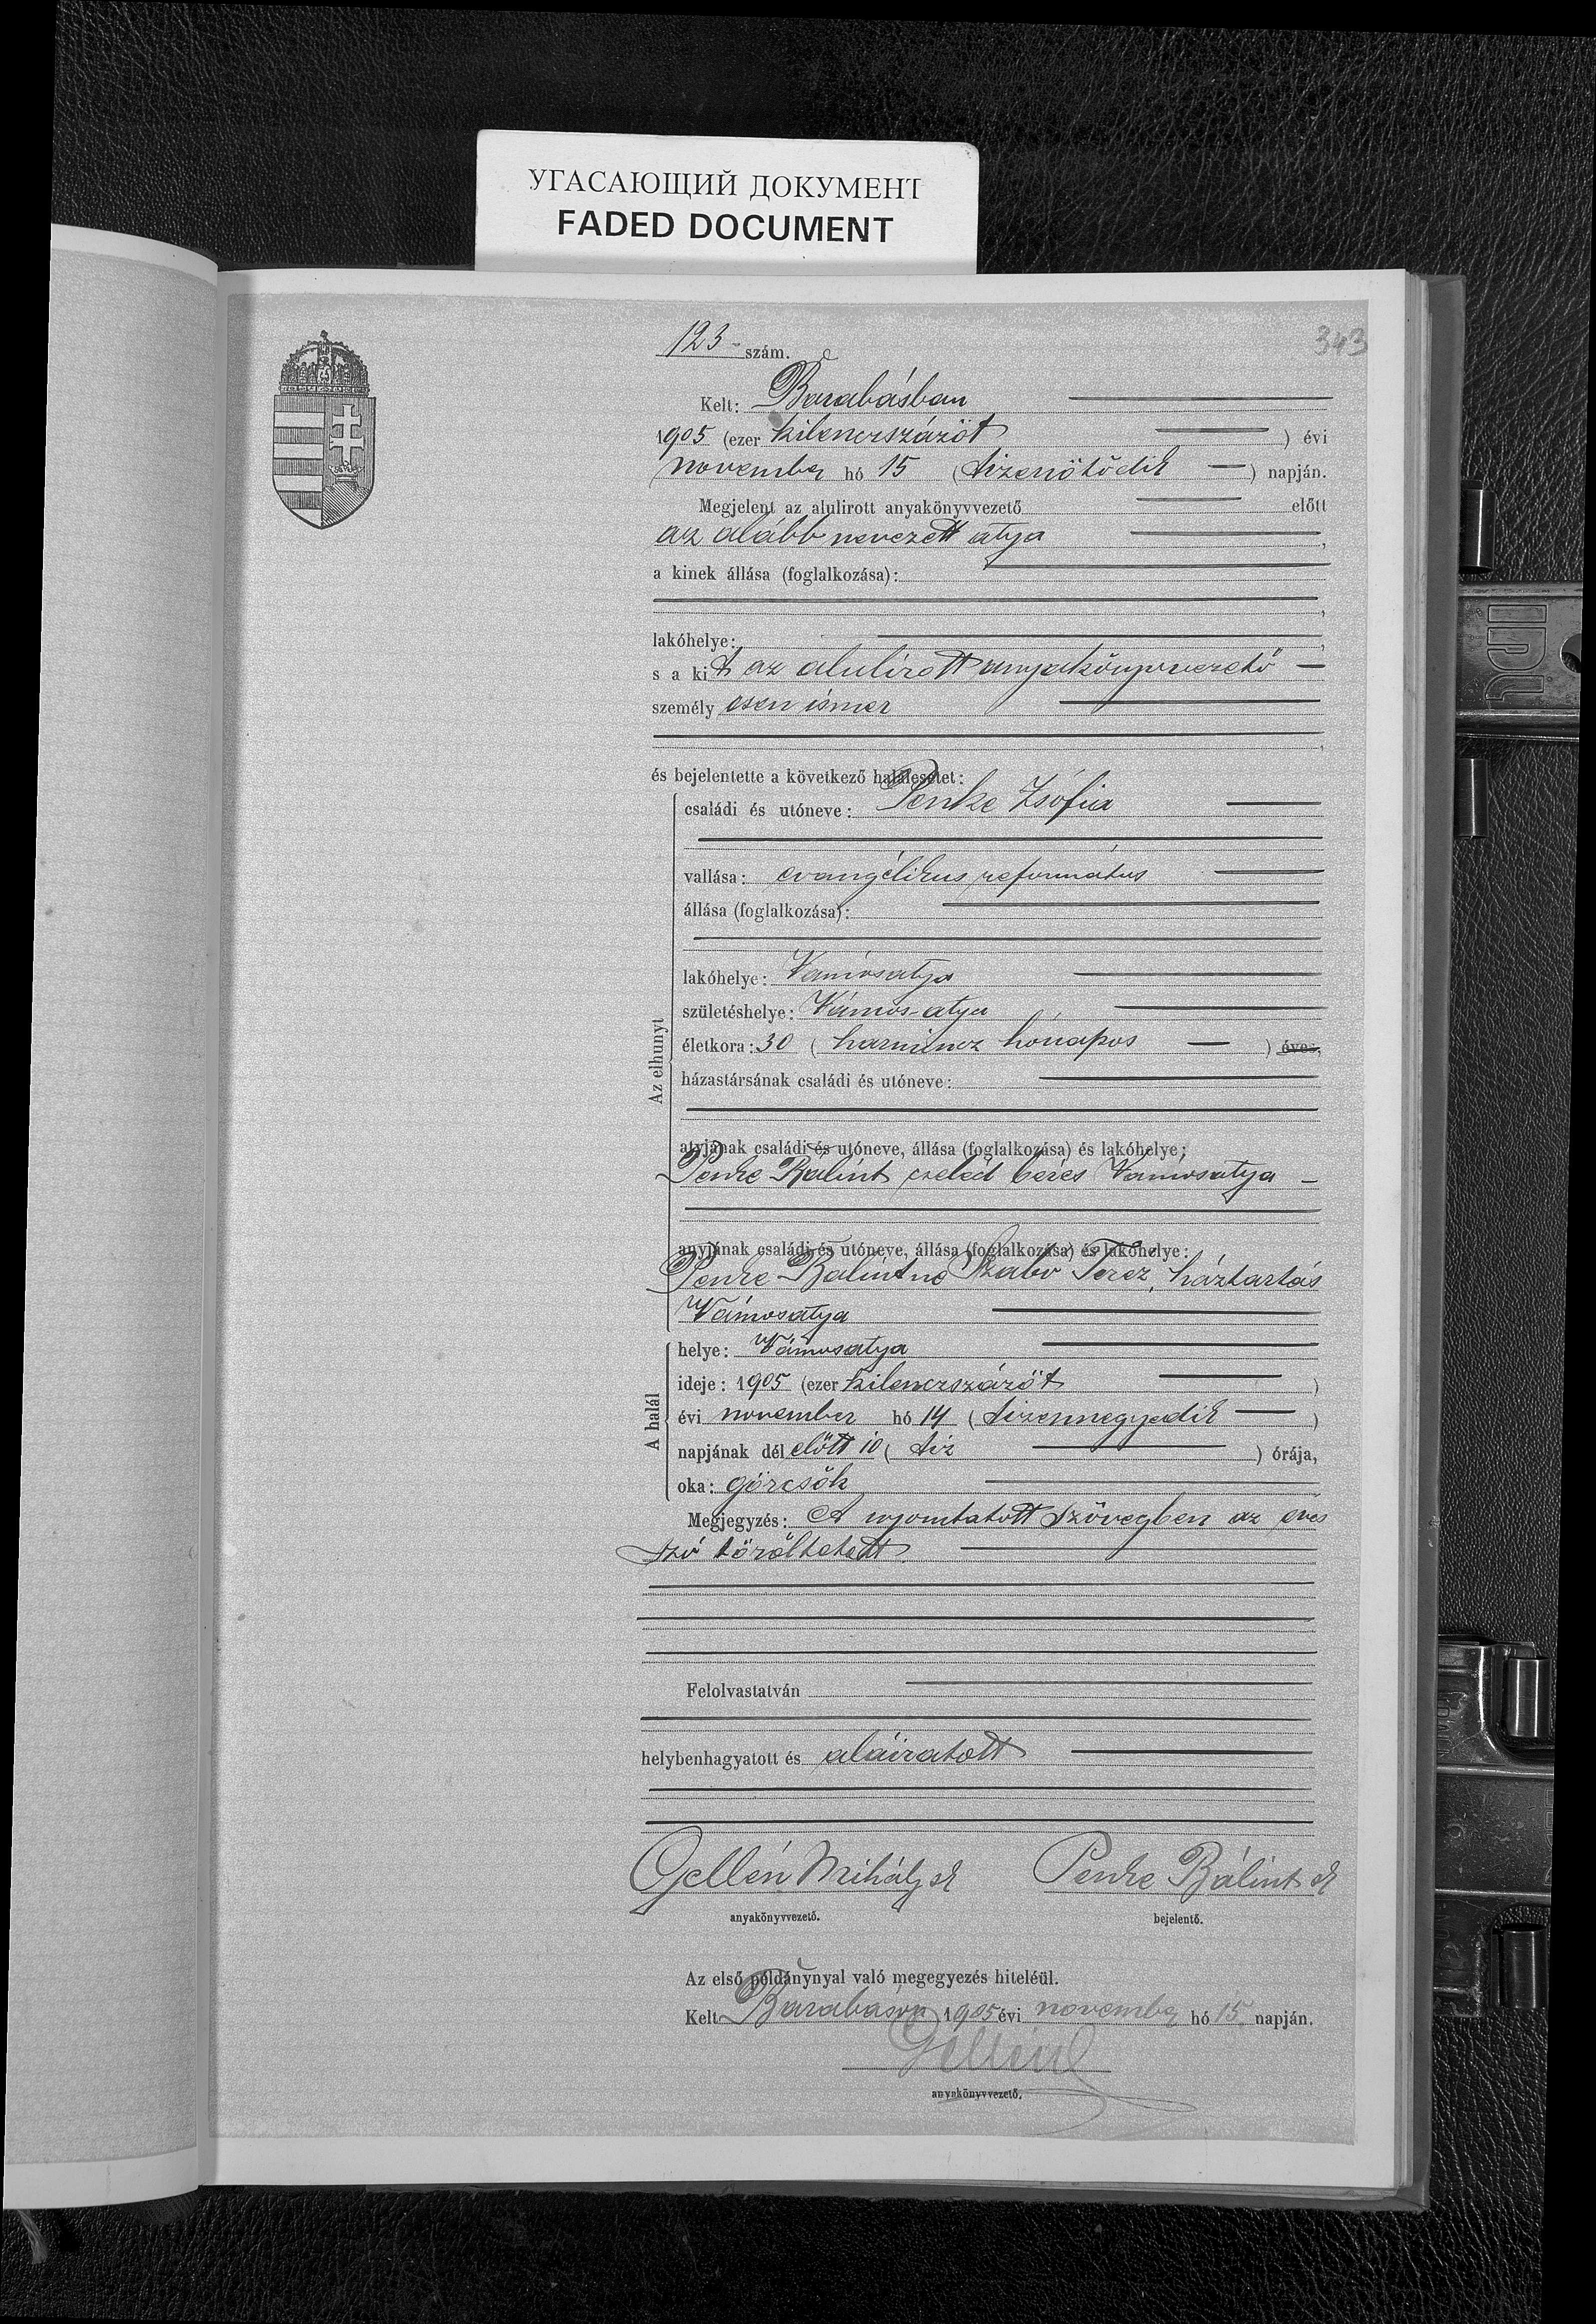 УГАСАЮЩИЙ ДОКУМЕНТ
FADED DOCUMENT
343
123 szám.
Kelt: Barabásban
1905 (ezer kilenczszázöt ) évi
november hó 15 (tizenötödik ) napján.
Megjelent az alulirott anyakönyvvezető előtt
az alább nevezett atya,
a kinek állása (foglalkozása):
lakóhelye:
s a kit az alulirott anyakönyvvezető
személyesen ismer
és bejelentette a következő halálesetet:
Az elhunyt
családi és utóneve: Penke Zsófia
vallása: evangélikus református
állása (foglalkozása):
lakóhelye: Vámosatya
születéshelye: Vámos-atya
életkora: 30 (harmincz hónapos ) éves,
házastársának családi és utóneve:
atyjának családi és utóneve, állása (foglalkozása) és lakóhelye:
Penke Bálint cseléd béres Vámosatya
anyjának családi és utóneve, állása (foglalkozása) és lakóhelye:
Penke Bálintné Szabó Teréz, háztartás
Vámosatya
A halál
helye: Vámosatya
ideje: 1905 (ezer kilenczszázöt )
évi november hó 14 (tizennegyedik )
napjának délelőtt 10 (tiz ) órája,
oka: görcsök
Megjegyzés: A nyomtatott szövegben az éves
szó töröltetett
Felolvastatván
helybenhagyatott és aláiratott
Gellén Mihály sk Penke Bálint sk
anyakönyvvezető. bejelentő.
Az első példánynyal való megegyezés hiteléül.
Kelt Barabáson 1905 évi november hó 15. napján.
Gellén
anyakönyvvezető.